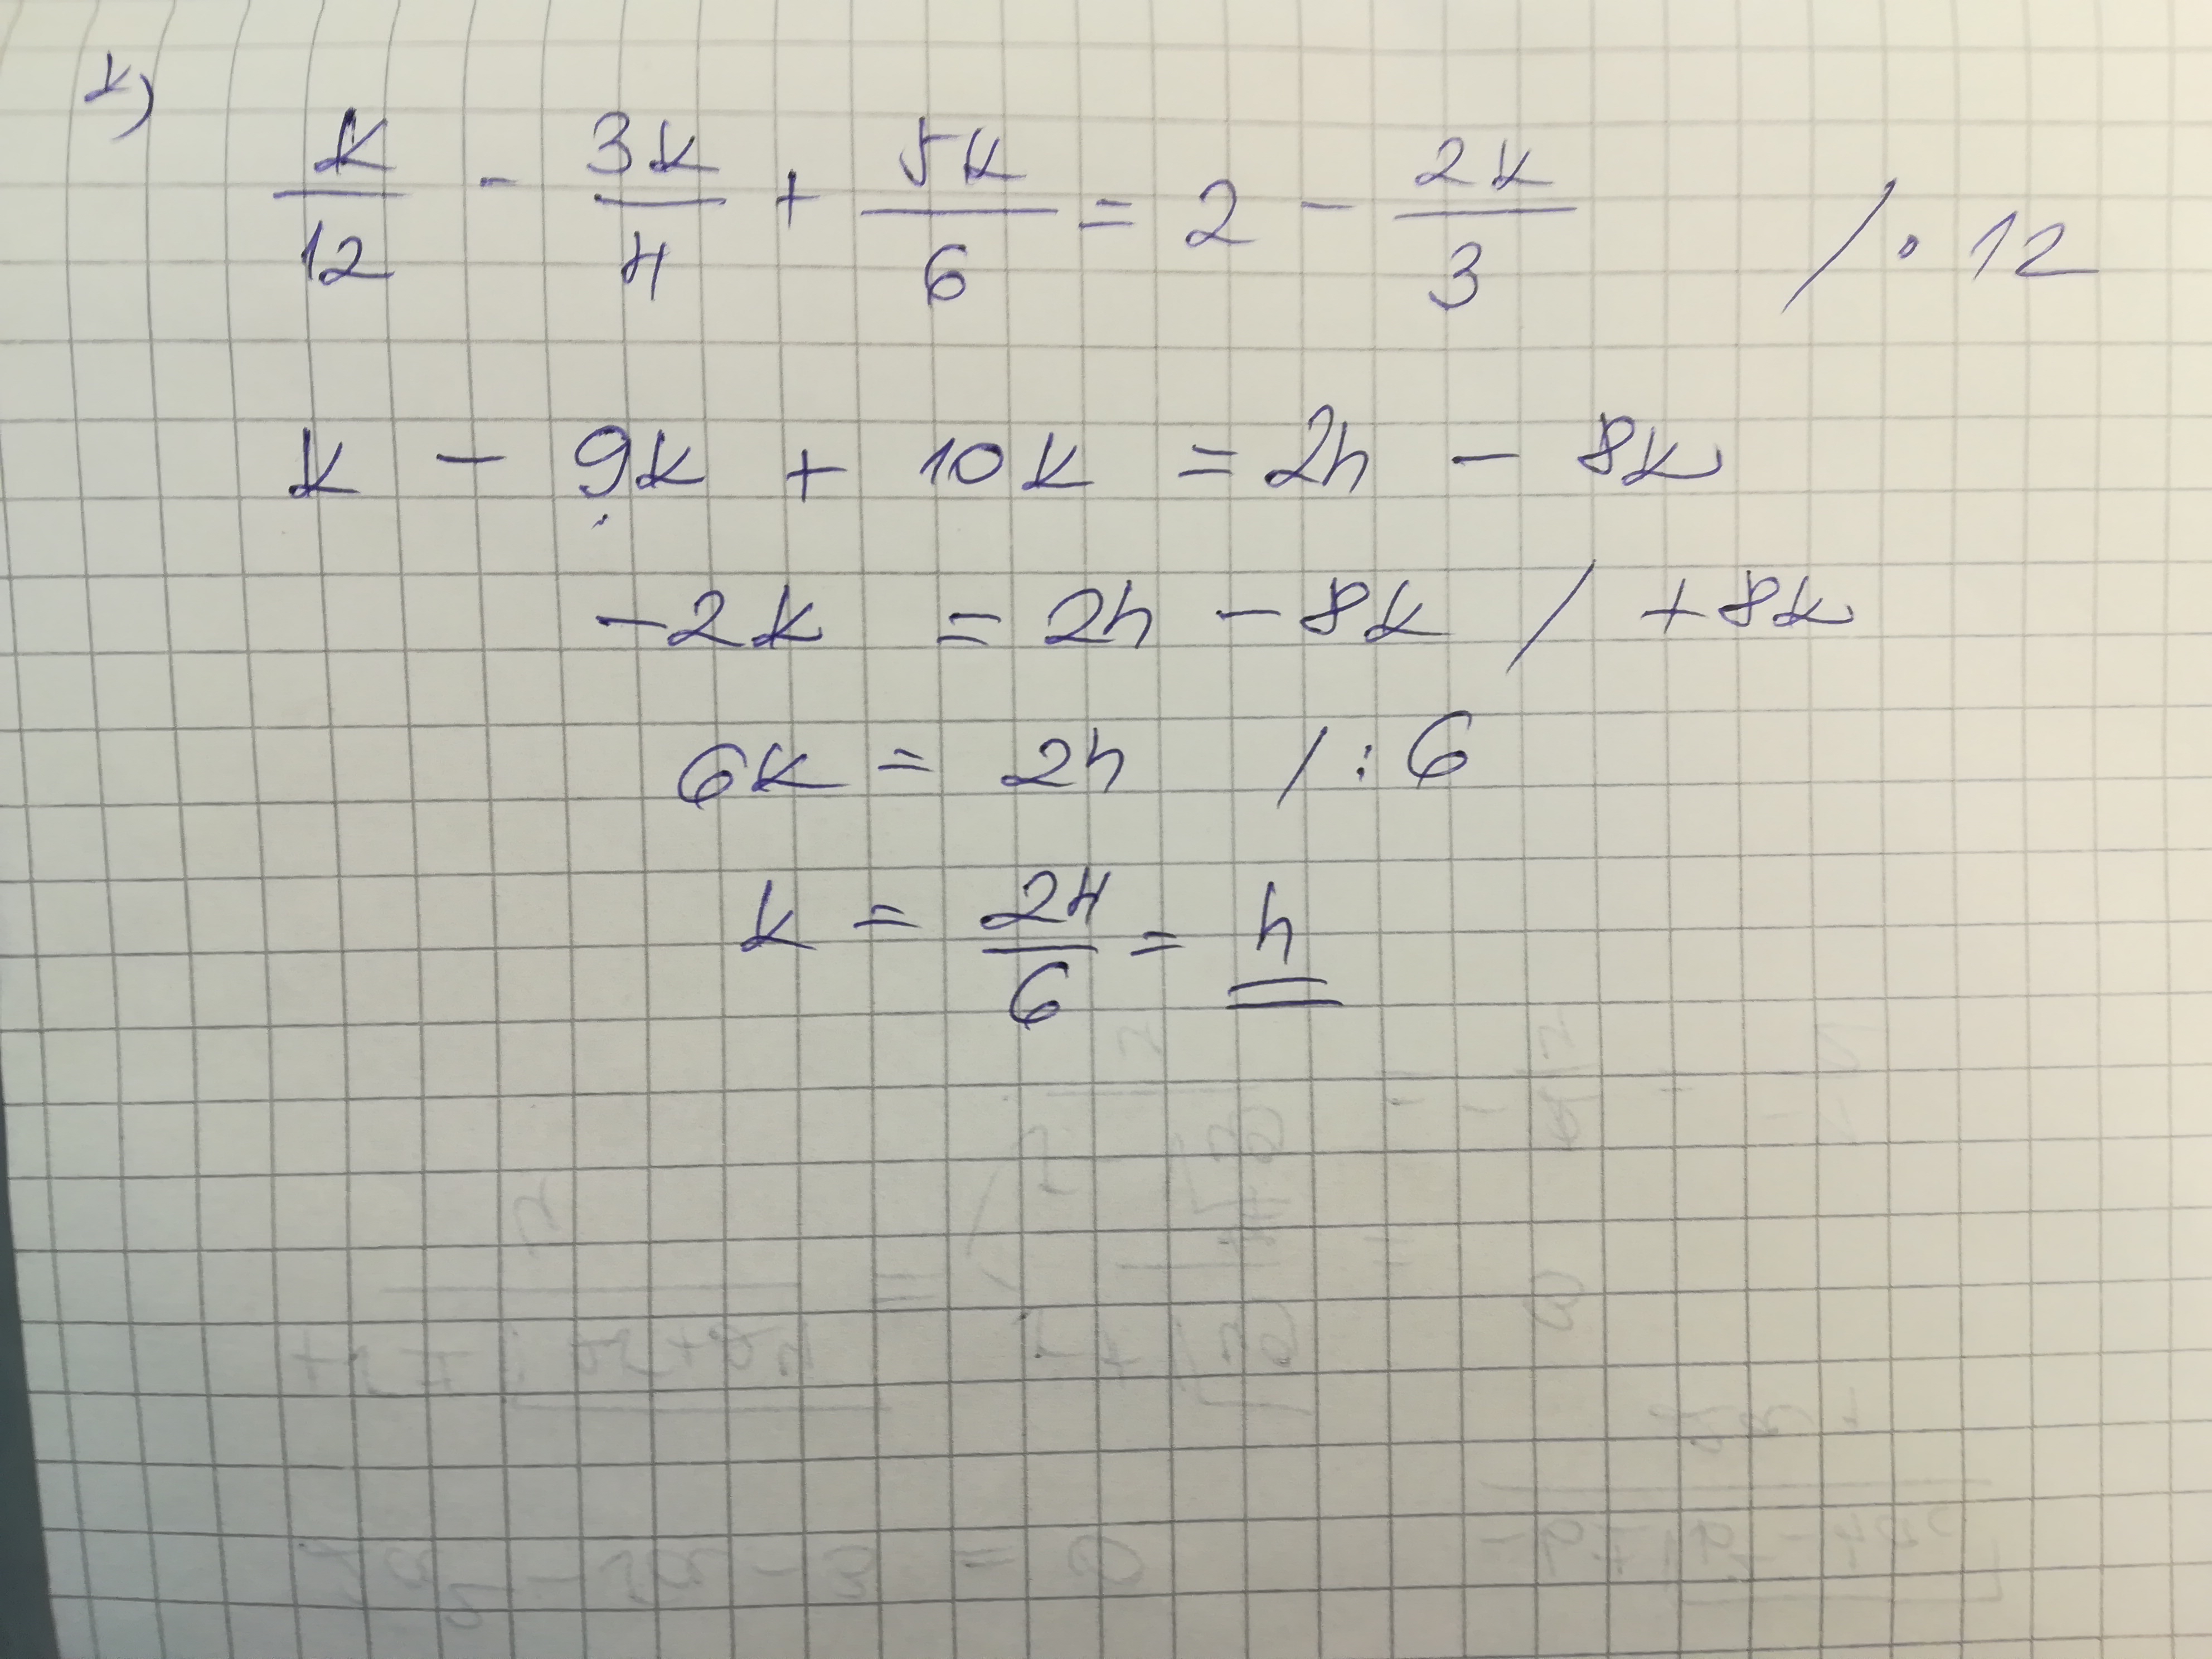 k)
k/12 - 3k/4 + 5k/6 = 2 - 2k/3 / · 12
k - 9k + 10k = 24 - 8k
-2k = 24 - 8k / +8k
6k = 24 / : 6
k = 24/6 = 4